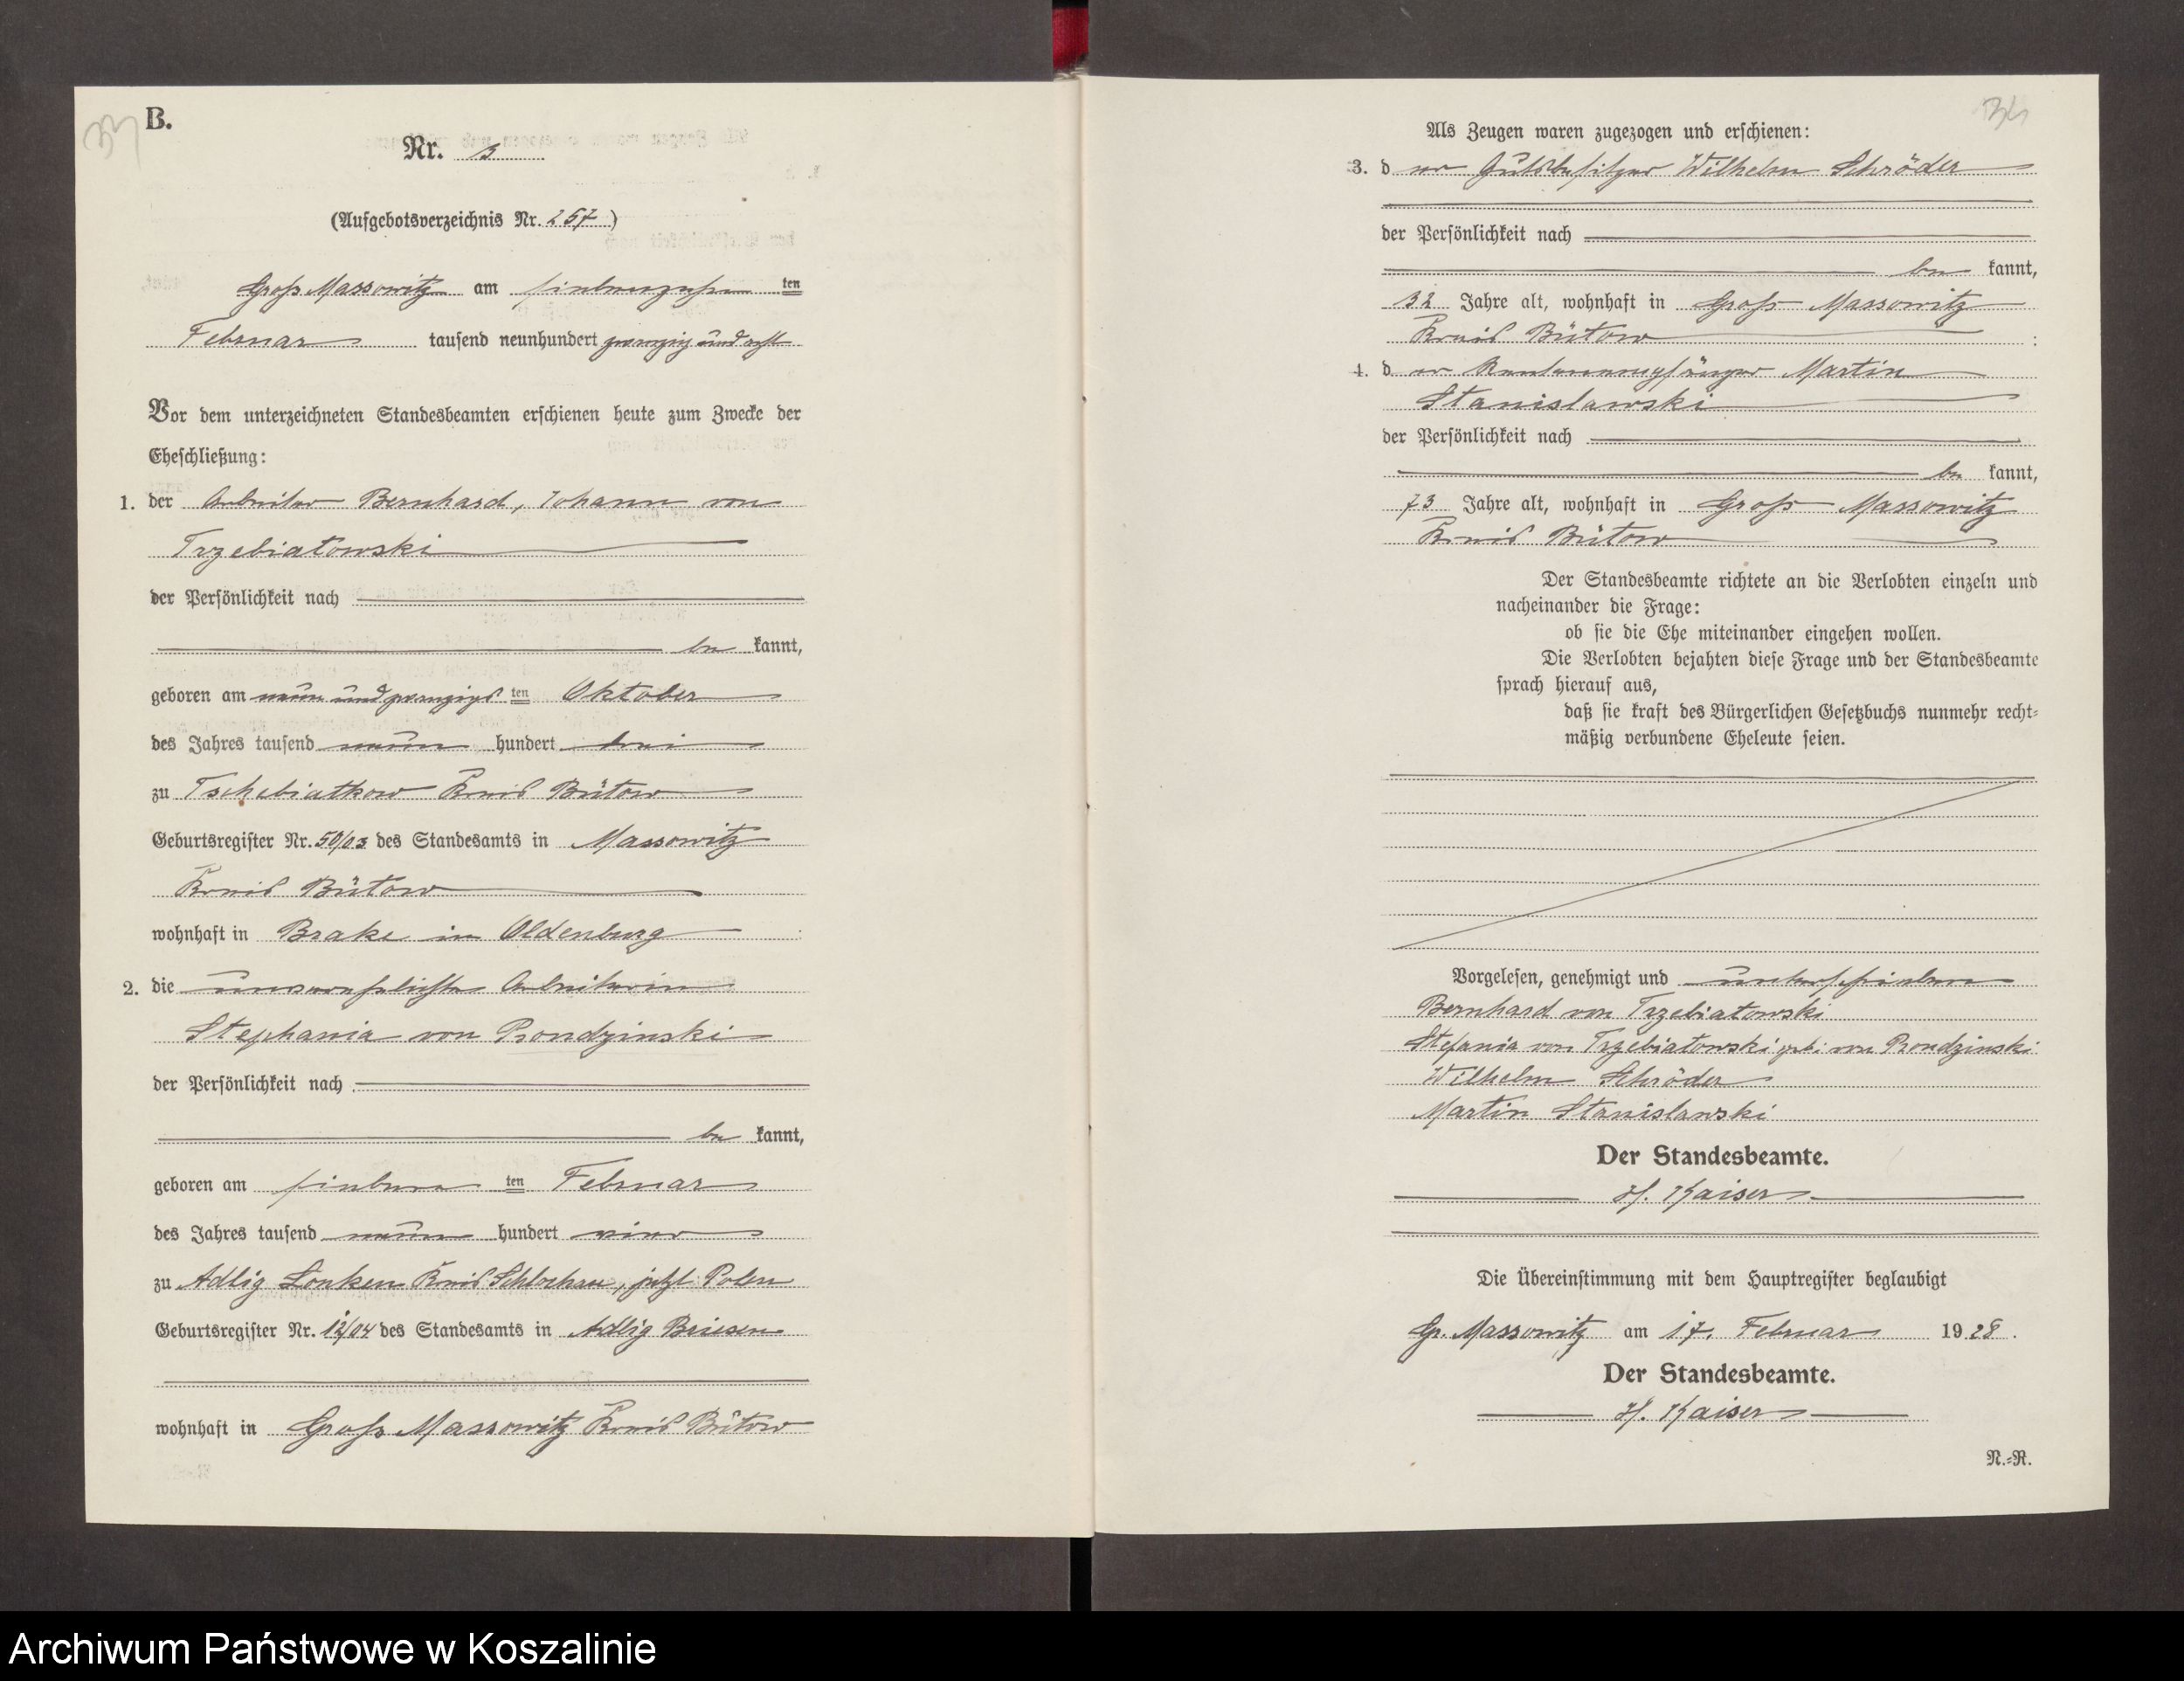 33
B.
Nr. 3
(Aufgebotsverzeichnis Nr. 257)
Groß Massowitz am siebenzehnten
Februar tausend neunhundert zwanzig und acht
Vor dem unterzeichneten Standesbeamten erschienen heute zum Zwecke der
Eheschließung:
1. der Arbeiter Bernhard, Johann von
Trzebiatowski
der Persönlichkeit nach
be kannt,
geboren am neun und zwanzigsten Oktober
des Jahres tausend neun hundert drei
zu Tschebiatkow Kreis Bütow
Geburtsregister Nr. 50/03 des Standesamts in Massowitz
Kreis Bütow
wohnhaft in Brake in Oldenburg
2. die unverehelichte Arbeiterin
Stephania von Rondzinski
der Persönlichkeit nach
be kannt,
geboren am siebenten Februar
des Jahres tausend neun hundert vier
zu Adlig Lonken Kreis Schlochau, jetzt Polen
Geburtsregister Nr. 12/04 des Standesamts in Adlig Briesen
wohnhaft in Groß Massowitz Kreis Bütow
34
Als Zeugen waren zugezogen und erschienen:
3. der Gutsbesitzer Wilhelm Schröder
der Persönlichkeit nach
be kannt,
32 Jahre alt, wohnhaft in Groß Massowitz
Kreis Bütow :
4. der Rentenempfänger Martin
Stanislawski
der Persönlichkeit nach
be kannt,
73 Jahre alt, wohnhaft in Groß Massowitz
Kreis Bütow
Der Standesbeamte richtete an die Verlobten einzeln und
nacheinander die Frage:
ob sie die Ehe miteinander eingehen wollen.
Die Verlobten bejahten diese Frage und der Standesbeamte
sprach hierauf aus,
daß sie kraft des Bürgerlichen Gesetzbuchs nunmehr recht-
mäßig verbundene Eheleute seien.
Vorgelesen, genehmigt und unterschrieben
Bernhard von Trzebiatowski
Stefania von Trzebiatowski geb. von Rondzinski
Wilhelm Schröder
Martin Stanislawski
Der Standesbeamte.
H. Kaiser
Die Übereinstimmung mit dem Hauptregister beglaubigt
Gr. Massowitz am 17. Februar 1928.
Der Standesbeamte.
H. Kaiser
N.-R.
Archiwum Państwowe w Koszalinie